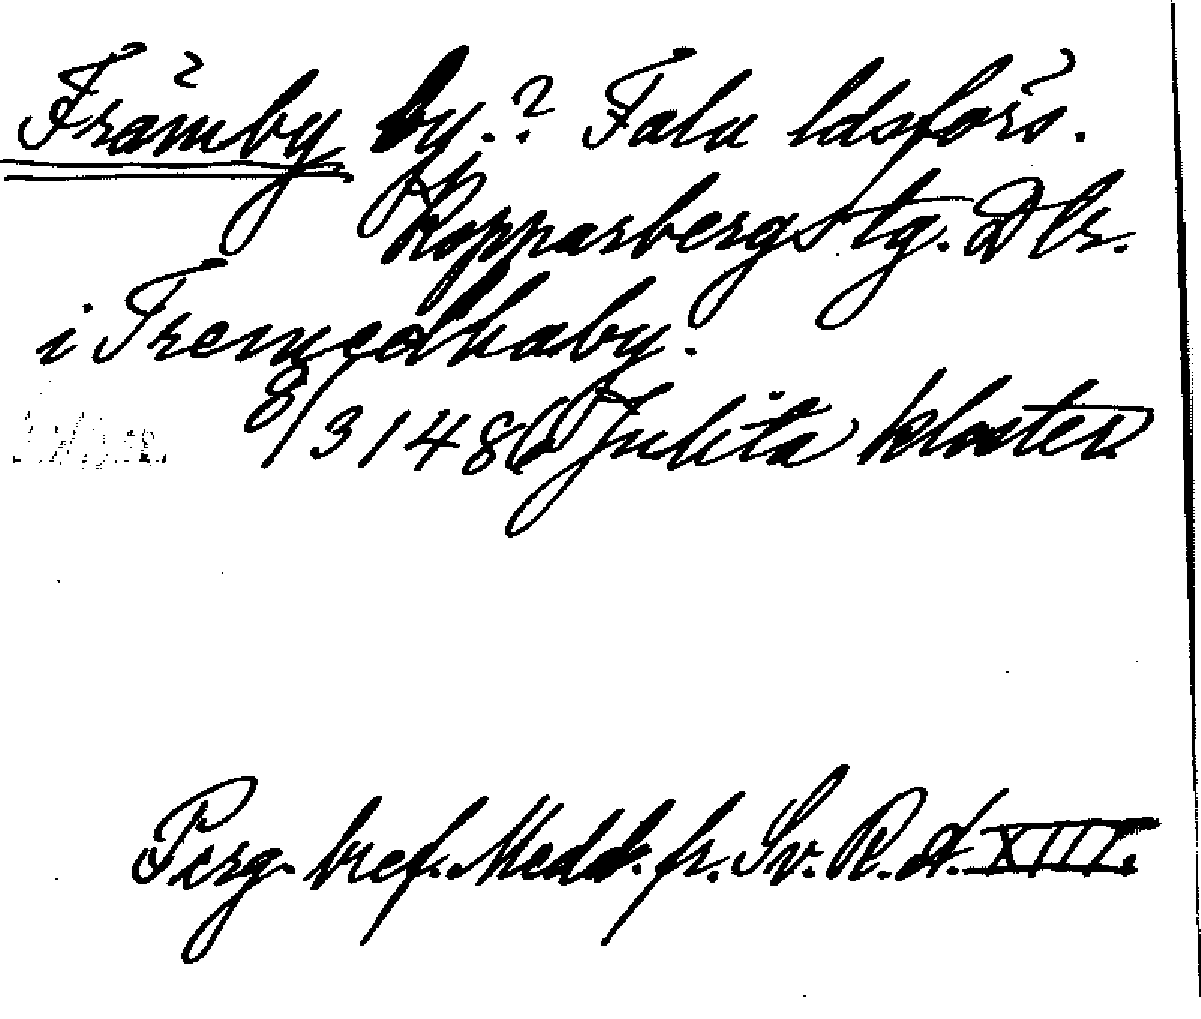 Främby by.? Falu ldsförs.
Kopparbergs tg. Dlr.
i Fremedhaby.
8/3 1486 Julita kloster
Perg. bref. Medd. fr. Sv. R. A. XIII.